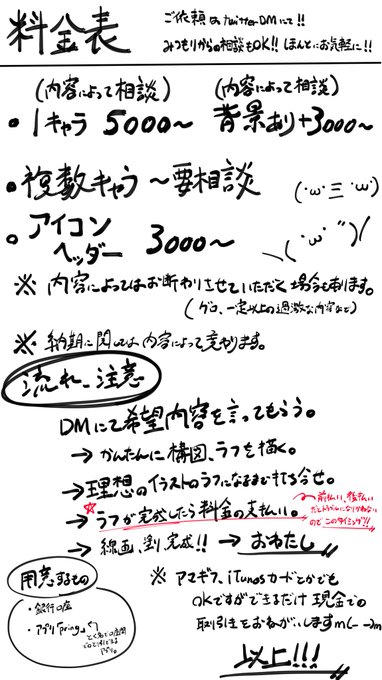 料金表
ご依頼は twitter DMにて!!
みつもりからの相談もOK!! ほんとにお気軽に!!
(内容によって相談) (内容によって相談)
• 1キャラ 5000〜 背景あり+3000〜
• 複数キャラ 〜要相談
(・ω・三・ω・)
• アイコン
ヘッダー 3000〜
※ 内容によってはお断わりさせていただく場合もあります。
(グロ、一定以上の過激な内容など)
※ 納期に関しては内容によって変わります。
流れ、注意
DMにて希望内容を言ってもらう。
→ かんたんに構図、ラフを描く。
→ 理想のイラストのラフになるまで打ち合せ。
→ ラフが完成したら料金の支払い。
前払い、後払い
だとトラブルになりかねない
のでこのタイミング!!
→ 線画、塗り、完成!! → おわたし
用意するもの
・銀行口座
・アプリ「pring」
※ アマギフ、iTunesカードとかでも
OKですができるだけ現金での
取引きをおねがいしますm(--)m
以上!!!